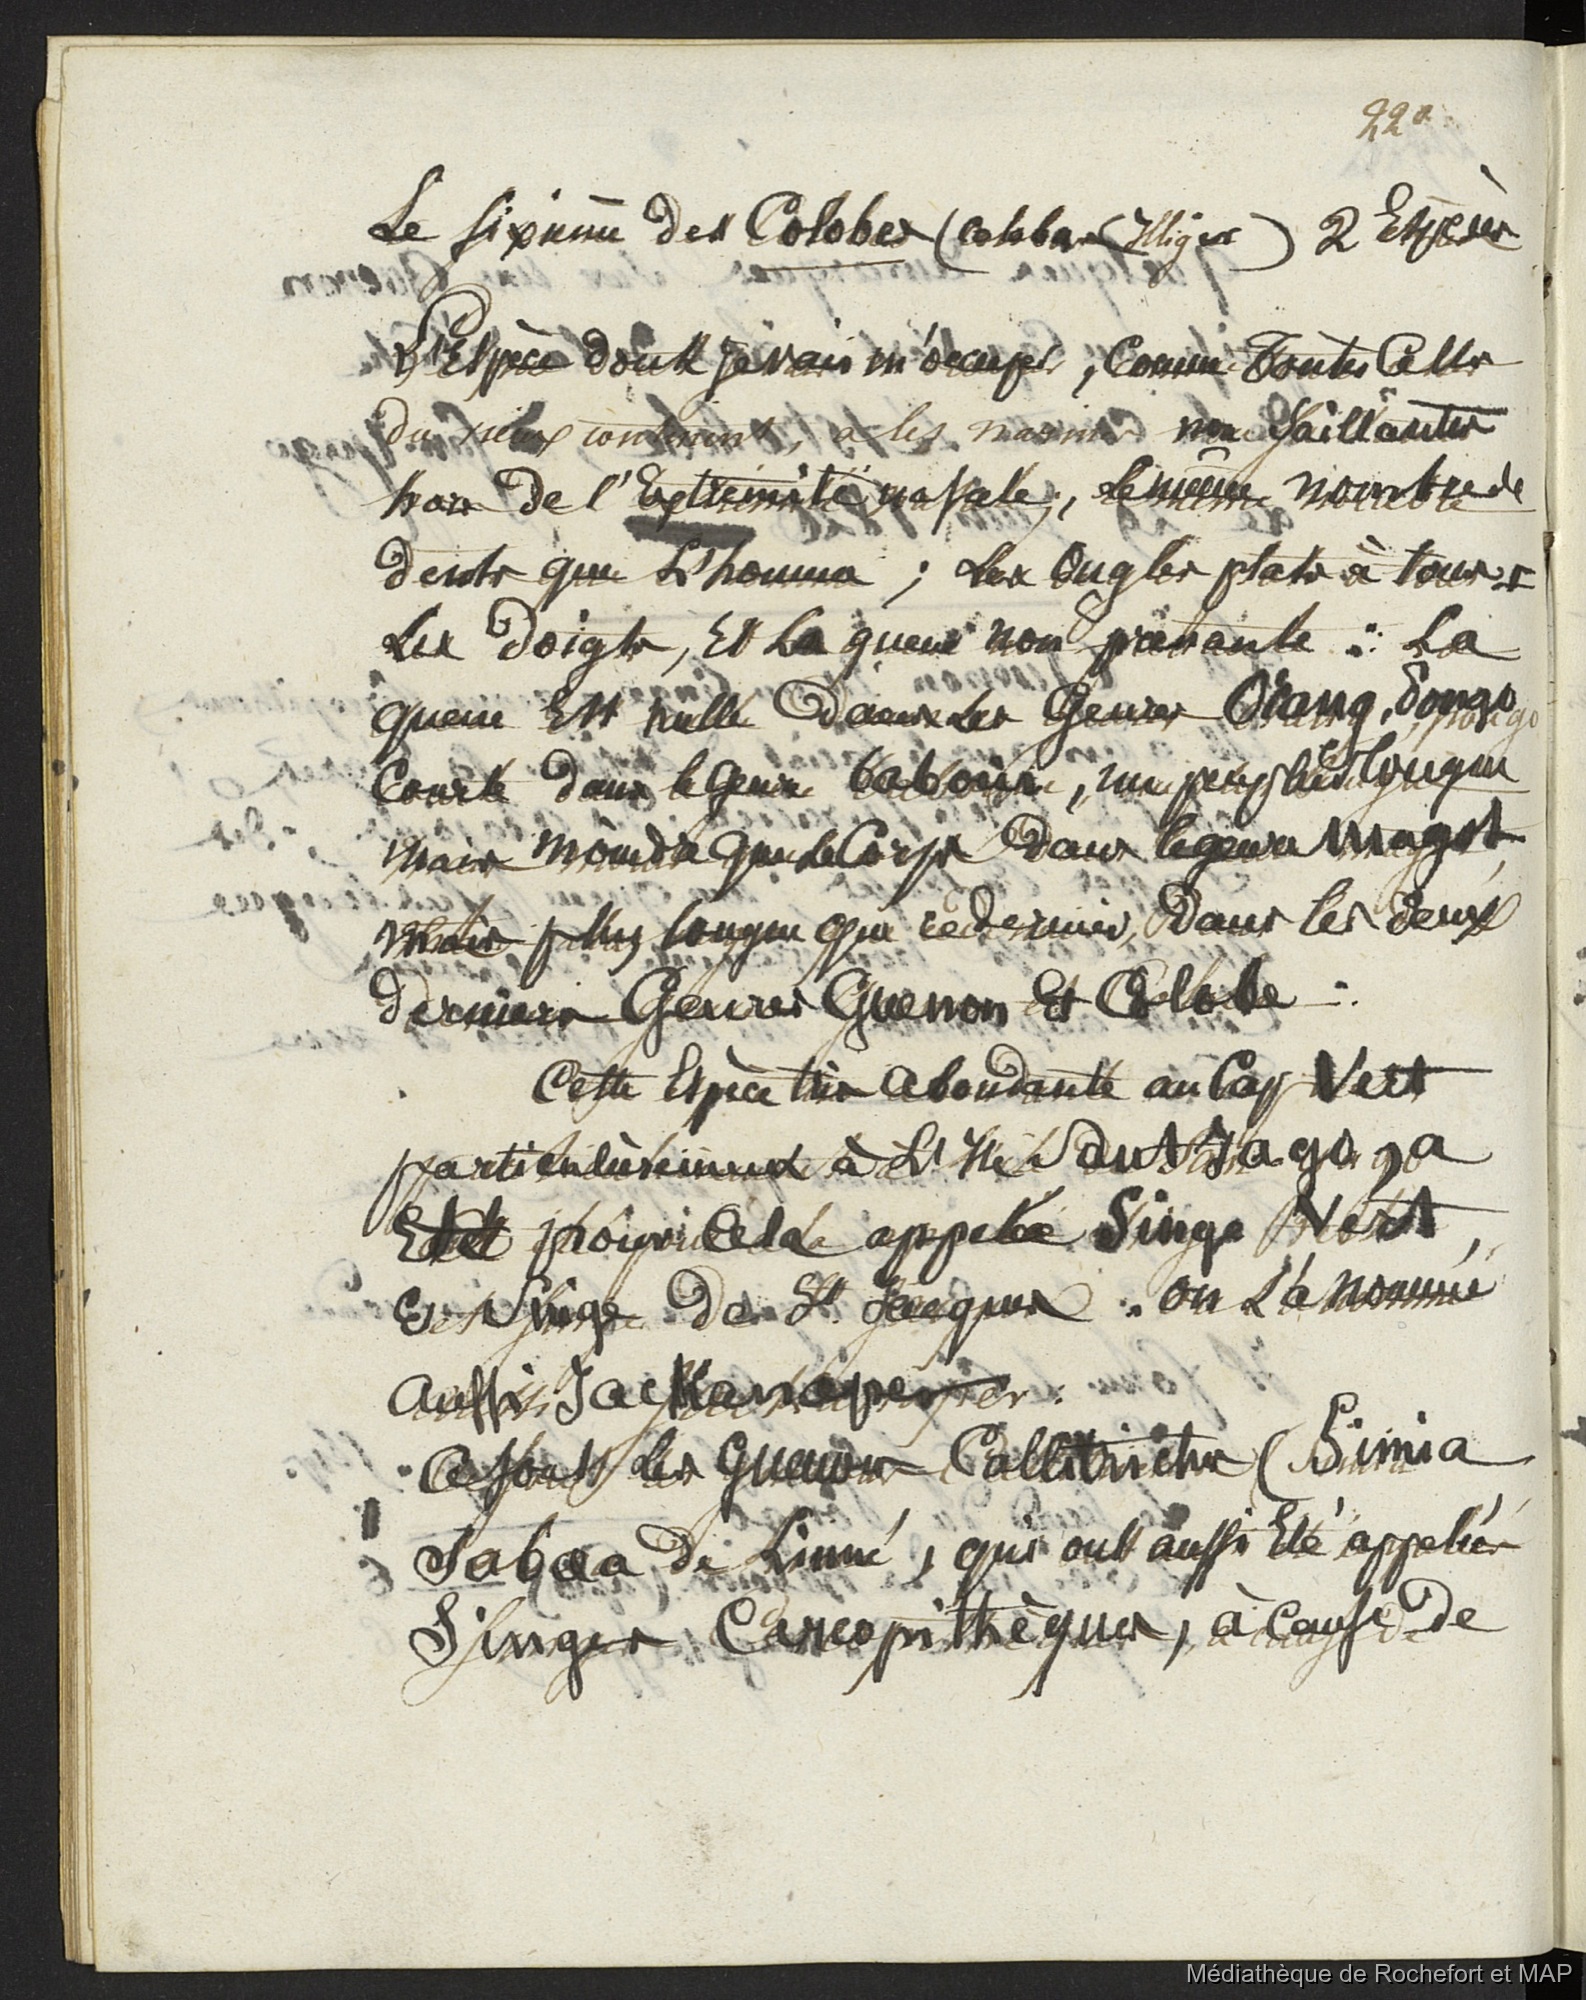 220
Le sixieme des Colobes (colobus Illiger) 2 Espèces
L'Espèce dont je vais m'occuper, Comme Toutes Celles
du vieux continent, a les narines non saillantes
hors de l'Extrémité nasale; le même nombre de
dents que L'homme; Les Ongles plats à tous
Les Doigts, Et La queue non prenante : La
queue Est nulle Dans Les Genres Orang, Pongo
Courte dans le Genre babouin, un peu plus longue
mais moindre que Le Corps Dans le genre magot
mais plus longue que ce dernier, Dans les deux
derniers Genres Guenon Et Colobe :
Cette Espèce très abondante au Cap Vert
particulièrement à L'Ile Santiago, a
Eté pour Cela appelée Singe Vert,
et Singe De St. Jacques : on L'a nommé
aussi Jackanapes :
Ce sont les Guenons Callitriches (Simia
Sabaea de Linné, qui ont aussi Eté appelées
Singes Cercopithèques, à Cause De
Médiathèque de Rochefort et MAP